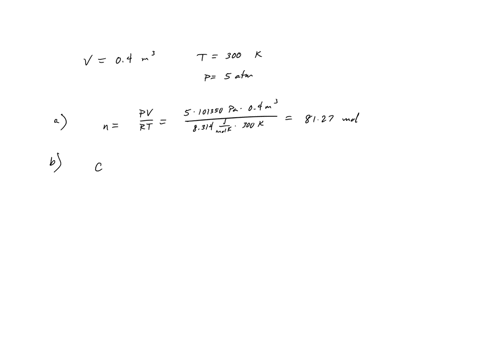 V = 0.4 m³ T = 300 K
P= 5 atm
a) n = PV/RT = 5·101350 Pa · 0.4 m³ / 8.314 J/molK · 300 K = 81.27 mol
b) C